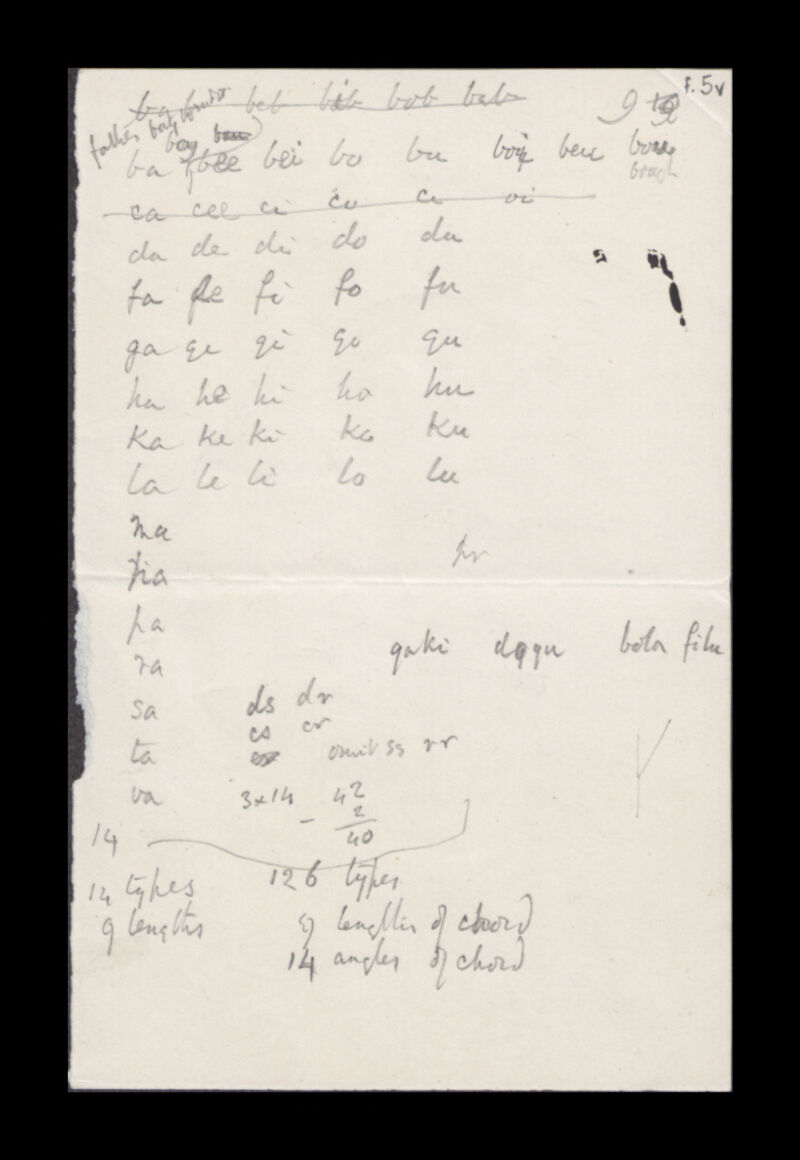 f.5v
ba beb bib bob bub
9
father
bay
ba bee bei bo bu boi beu bou
bough
ca cee ci co cu oi
da de di do du
fa fe fi fo fu
ga ge gi go gu
ha he hi ho hu
Ka Ke Ki Ko Ku
la le li lo lu
ma
pr
na
pa
gaki dogu bola filu
ra
sa ds dr
cs cr
ta omit ss rr
va 3x14 42
- 2
14 40
14 types 126 types
9 lengths 9 lengths of chord
14 angles of chord